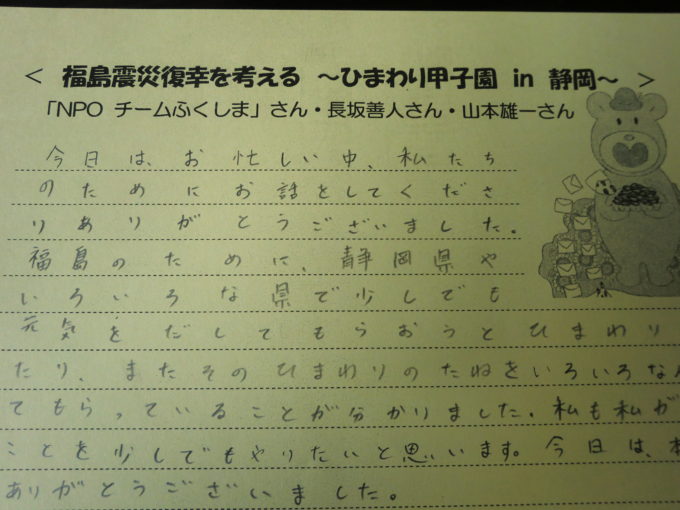 ＜ 福島震災復幸を考える ～ひまわり甲子園 in 静岡～ ＞
「NPO チームふくしま」さん・長坂善人さん・山本雄一さん
今日は、お忙しい中、私たち
のためにお話をしてくださ
りありがとうございました。
福島のために、静岡県や
いろいろな県で少しでも
元気をだしてもらおうとひまわり
たり、またそのひまわりのたねをいろいろな
てもらっていることが分かりました。私も私が
ことを少しでもやりたいと思います。今日は、本
ありがとうございました。